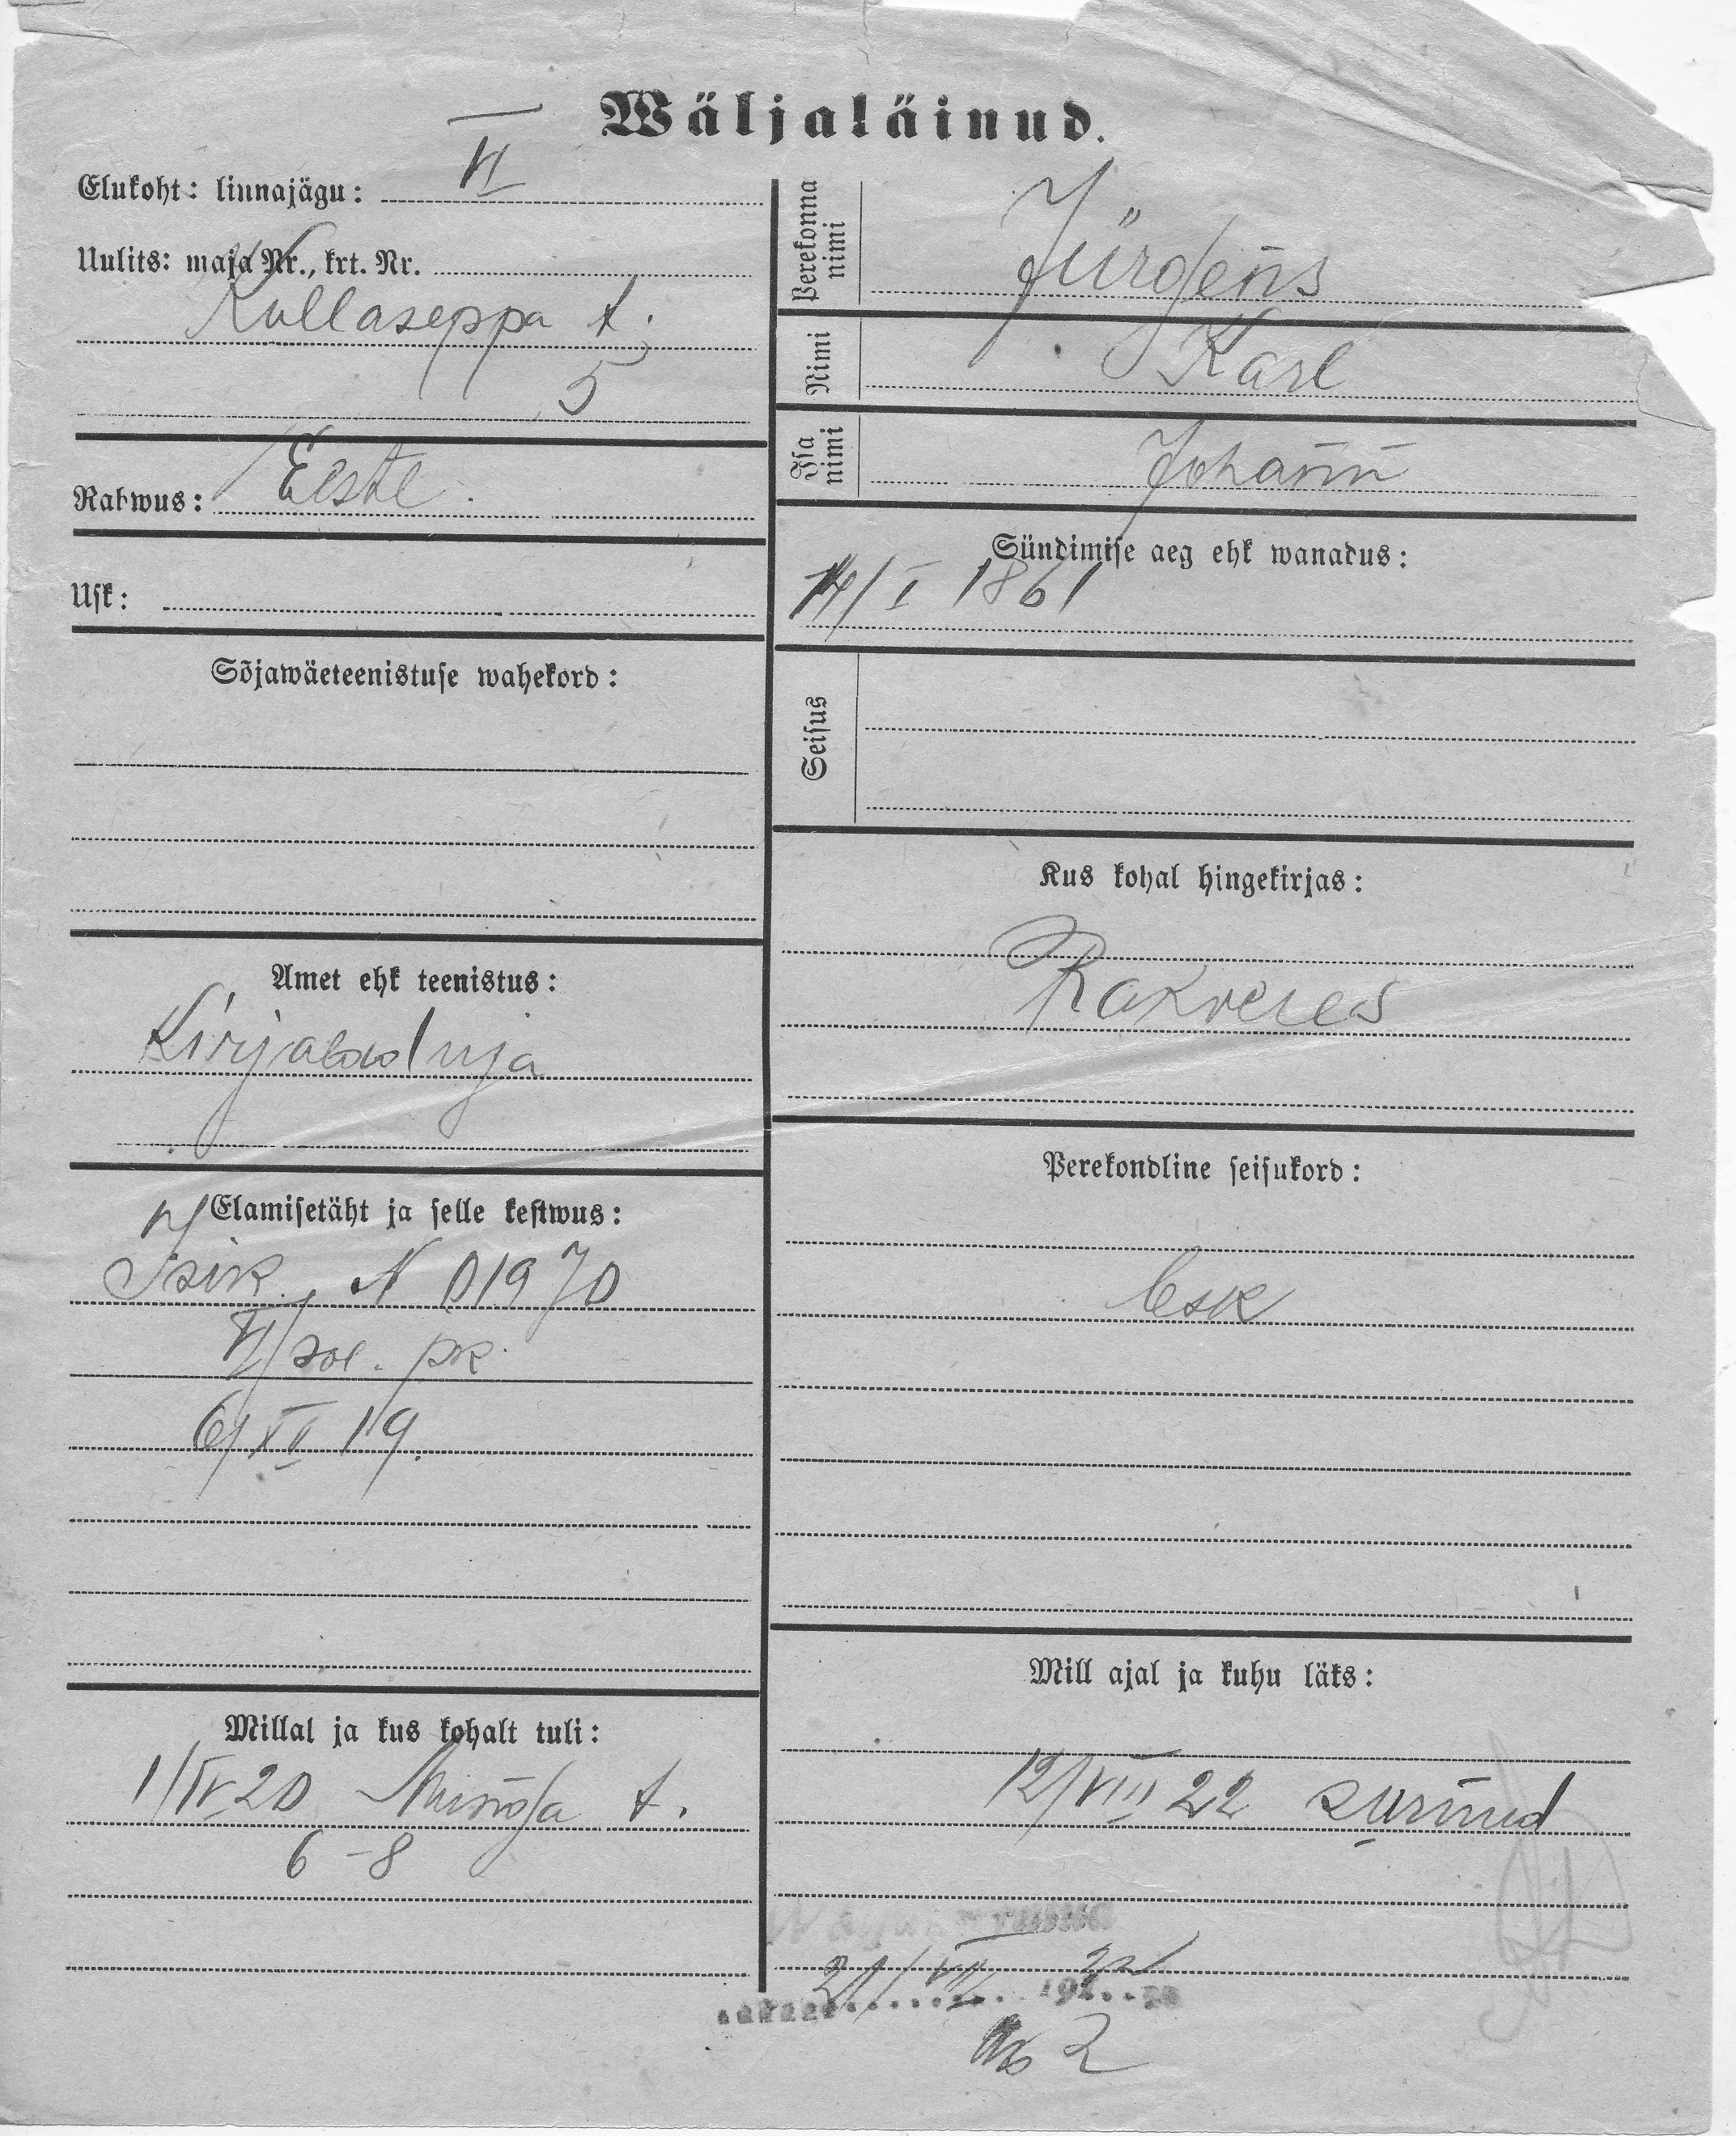 Wäljaläinud.
Elukoht: linnajägu: VI
Uulits: maja Nr., krt. Nr.
Kullaseppa t.
5
Rahwus: Eesti.
Usk:
Sõjawäeteenistuse wahekord:
Amet ehk teenistus:
Kirjaladuja
Elamisetäht ja selle kestwus:
Isik. N 01970
VI/ pk.
6/XII 19.
Millal ja kus kohalt tuli:
1/IV 20 t.
6-8
Perekonna nimi Jürgens
Nimi Karl
Isa nimi Johann
Sündimise aeg ehk wanadus:
14/I 1861
Seisus
Kus kohal hingekirjas:
Rakveres
Perekondline seisukord:
lesk
Mill ajal ja kuhu läks:
12/VIII 22 surnud
21/VIII 22
No 2